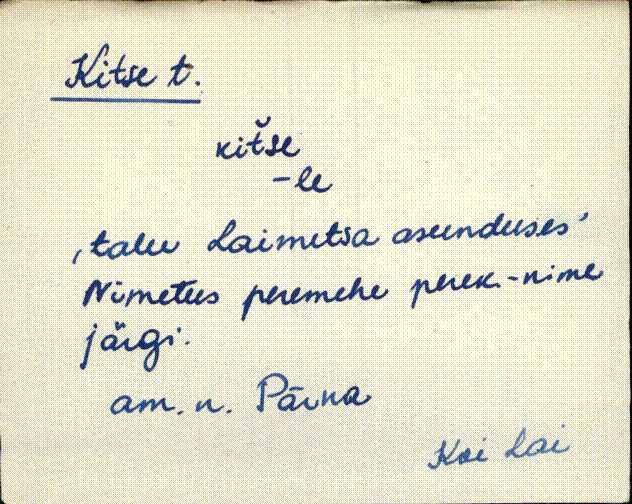 Kitse t.
kitše
-le
‚talu Laimetsa asunduses’
Nimetus peremehe perek.-nime
järgi.
am. n. Pärna
Koi Lai